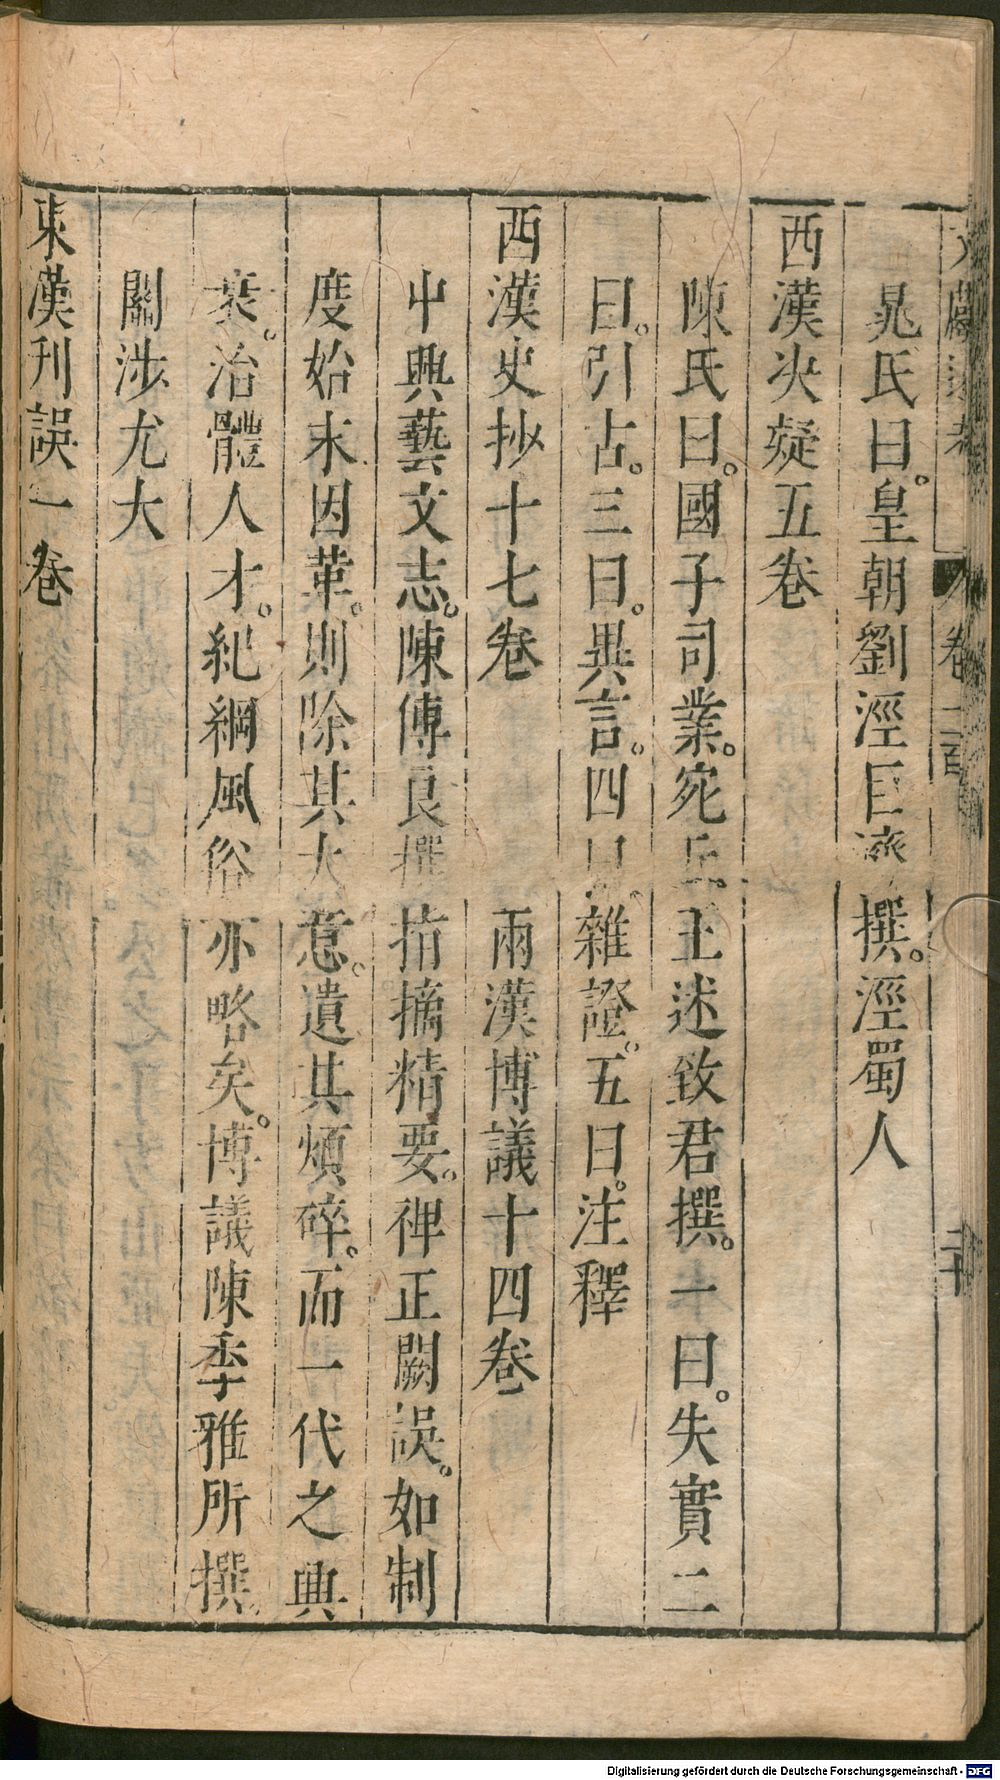 文獻通考 卷二百 二十
晁氏曰。皇朝劉涇巨濟撰。涇蜀人
西漢决疑五卷
陳氏曰。國子司業。宛丘王述致君撰。一曰。失實二
曰。引古。三曰。異言。四曰。雜證。五曰。注釋
西漢史抄十七卷 兩漢博議十四卷
中興藝文志。陳傅良撰指摘精要。裨正闕誤。如制
度始末因革。則除其大意。遺其煩碎。而一代之興
衰。治體人才。紀綱風俗亦略矣。博議陳季雅所撰。
關涉尤大
東漢刊誤一卷
Digitalisierung gefördert durch die Deutsche Forschungsgemeinschaft - DFG